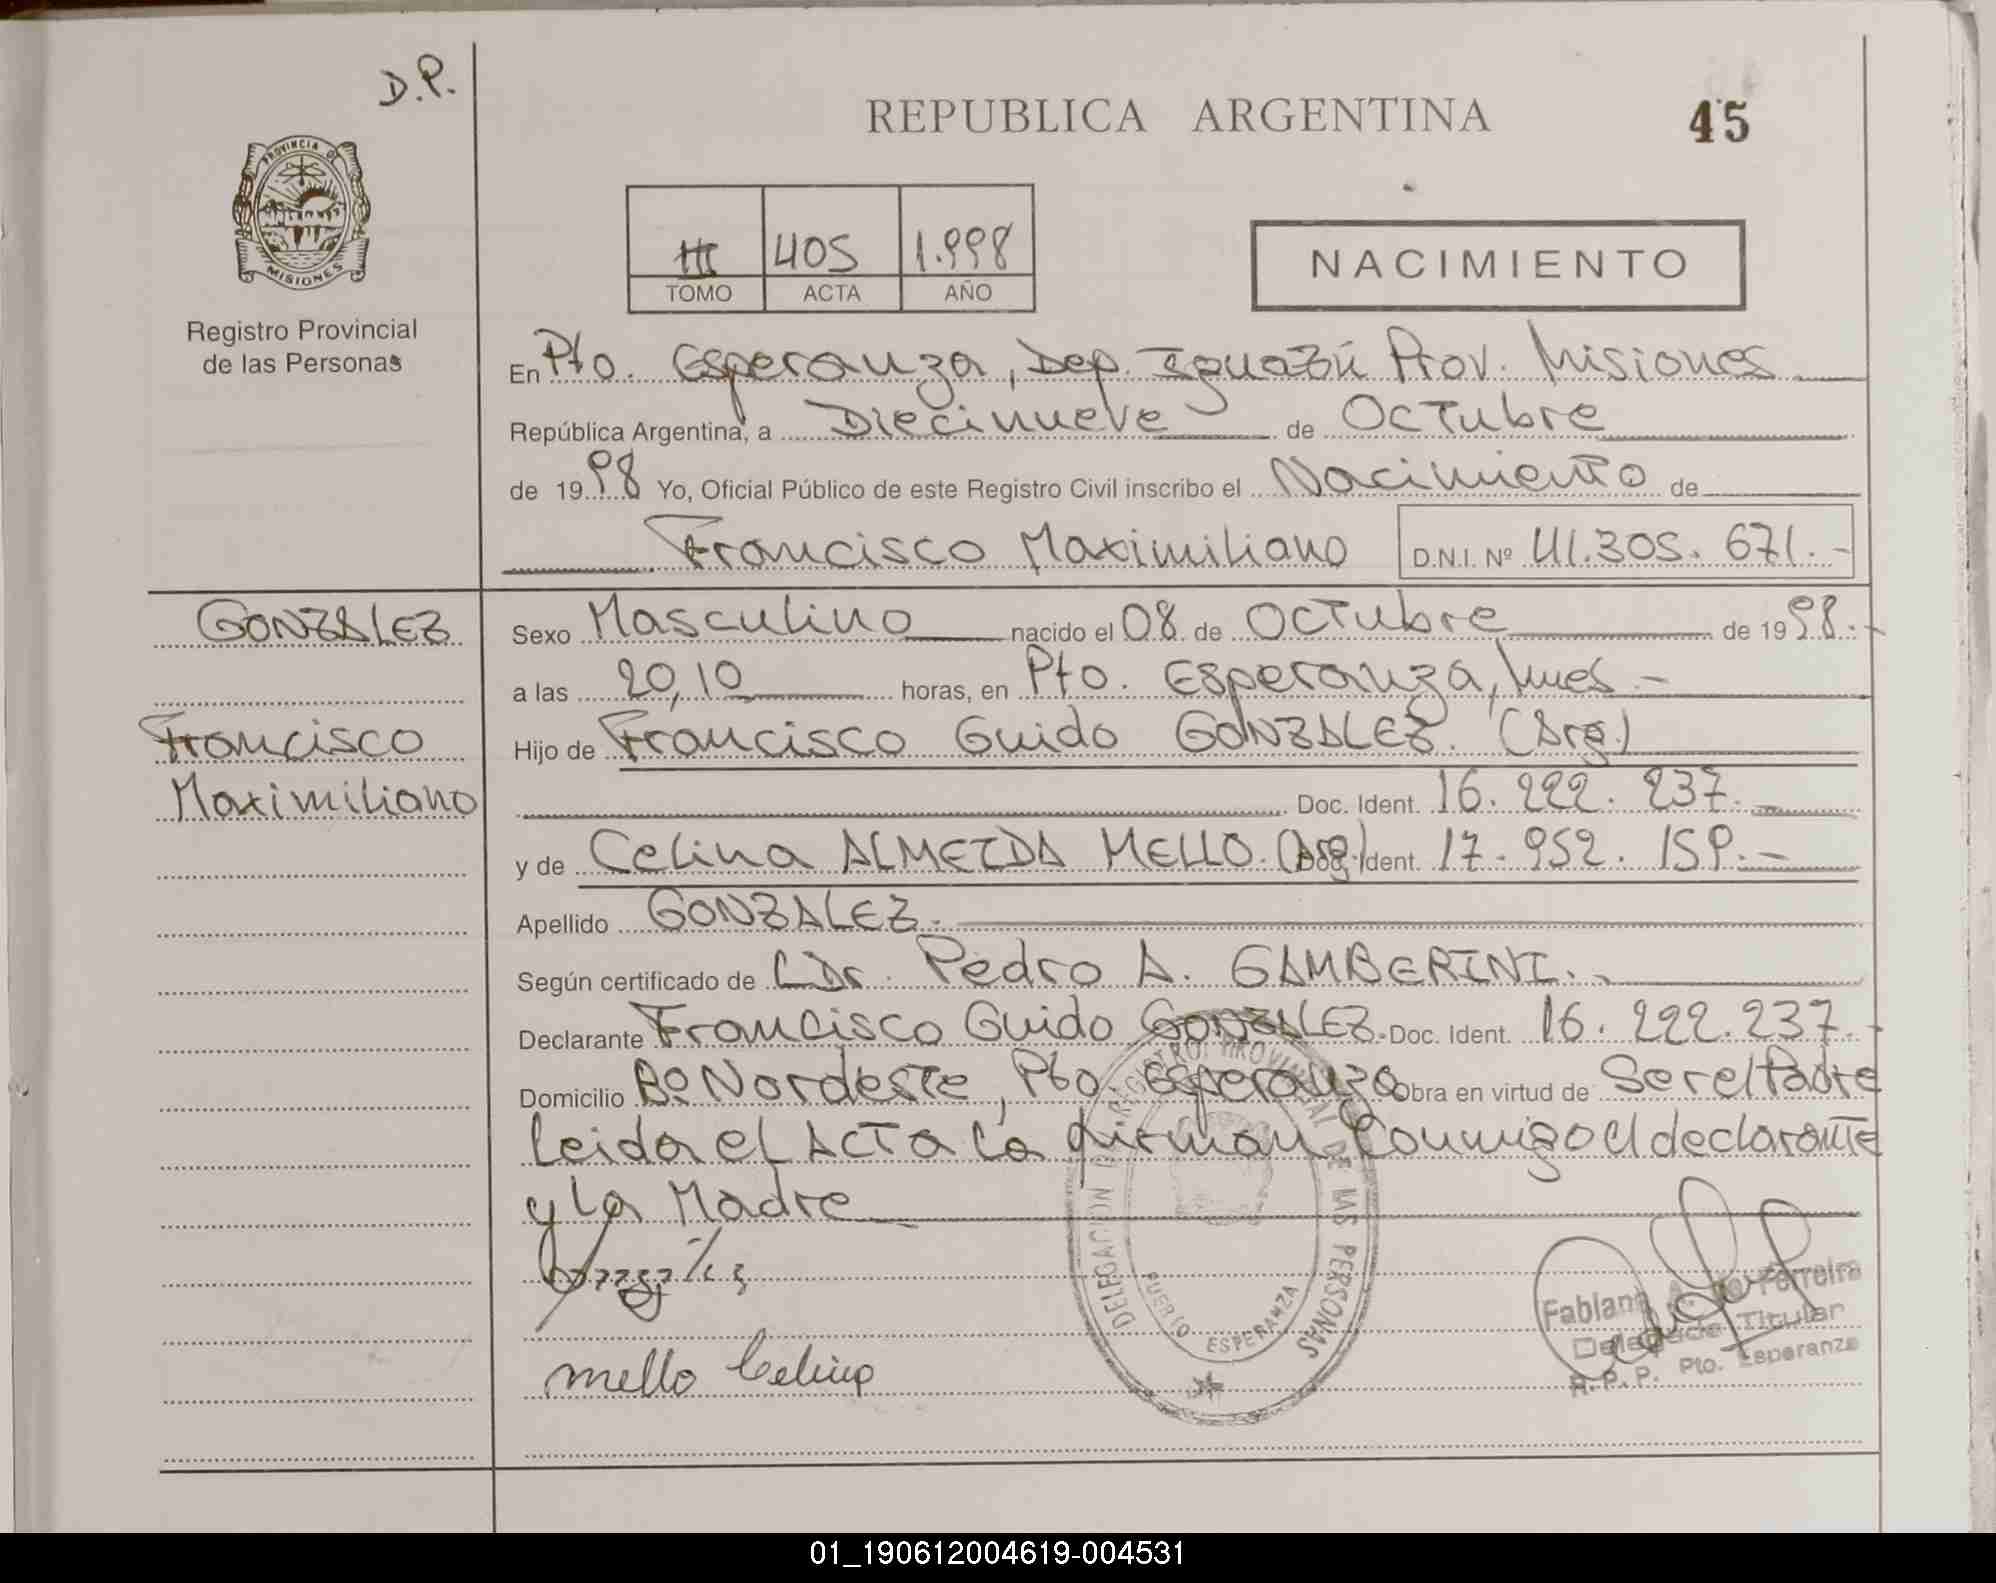 D.P.
REPUBLICA ARGENTINA
45
PROVINCIA DE
MISIONES
Registro Provincial
de las Personas
III 405 1.998
TOMO ACTA AÑO
NACIMIENTO
En Pto. Esperanza, Dep. Iguazú Prov. Misiones
República Argentina, a Diecinueve de Octubre
de 1998 Yo, Oficial Público de este Registro Civil inscribo el Nacimiento de
Francisco Maximiliano D.N.I. Nº 41.305.671.-
GONZALEZ
Francisco
Maximiliano
Sexo Masculino nacido el 08 de Octubre de 1998.-
a las 20,10 horas, en Pto. Esperanza, Mnes.-
Hijo de Francisco Guido GONZALEZ. (Arg.)
Doc. Ident. 16.222.237.-
y de Celina ALMEIDA MELLO. (Arg) Doc. Ident. 17.952.159.-
Apellido GONZALEZ.
Según certificado de Dr. Pedro A. GAMBERINI.
Declarante Francisco Guido GONZALEZ. Doc. Ident. 16.222.237.-
Domicilio Bº Nordeste, Pto. Esperanza Obra en virtud de Ser el Padre
Leida el ACTA La firman Conmigo el declarante
y La Madre
mello Celina
DELEGACION DEL REGISTRO PROVINCIAL DE LAS PERSONAS
PUERTO ESPERANZA
Fabiana A. Ferreira
Delegada Titular
R.P.P. Pto. Esperanza
01_190612004619-004531